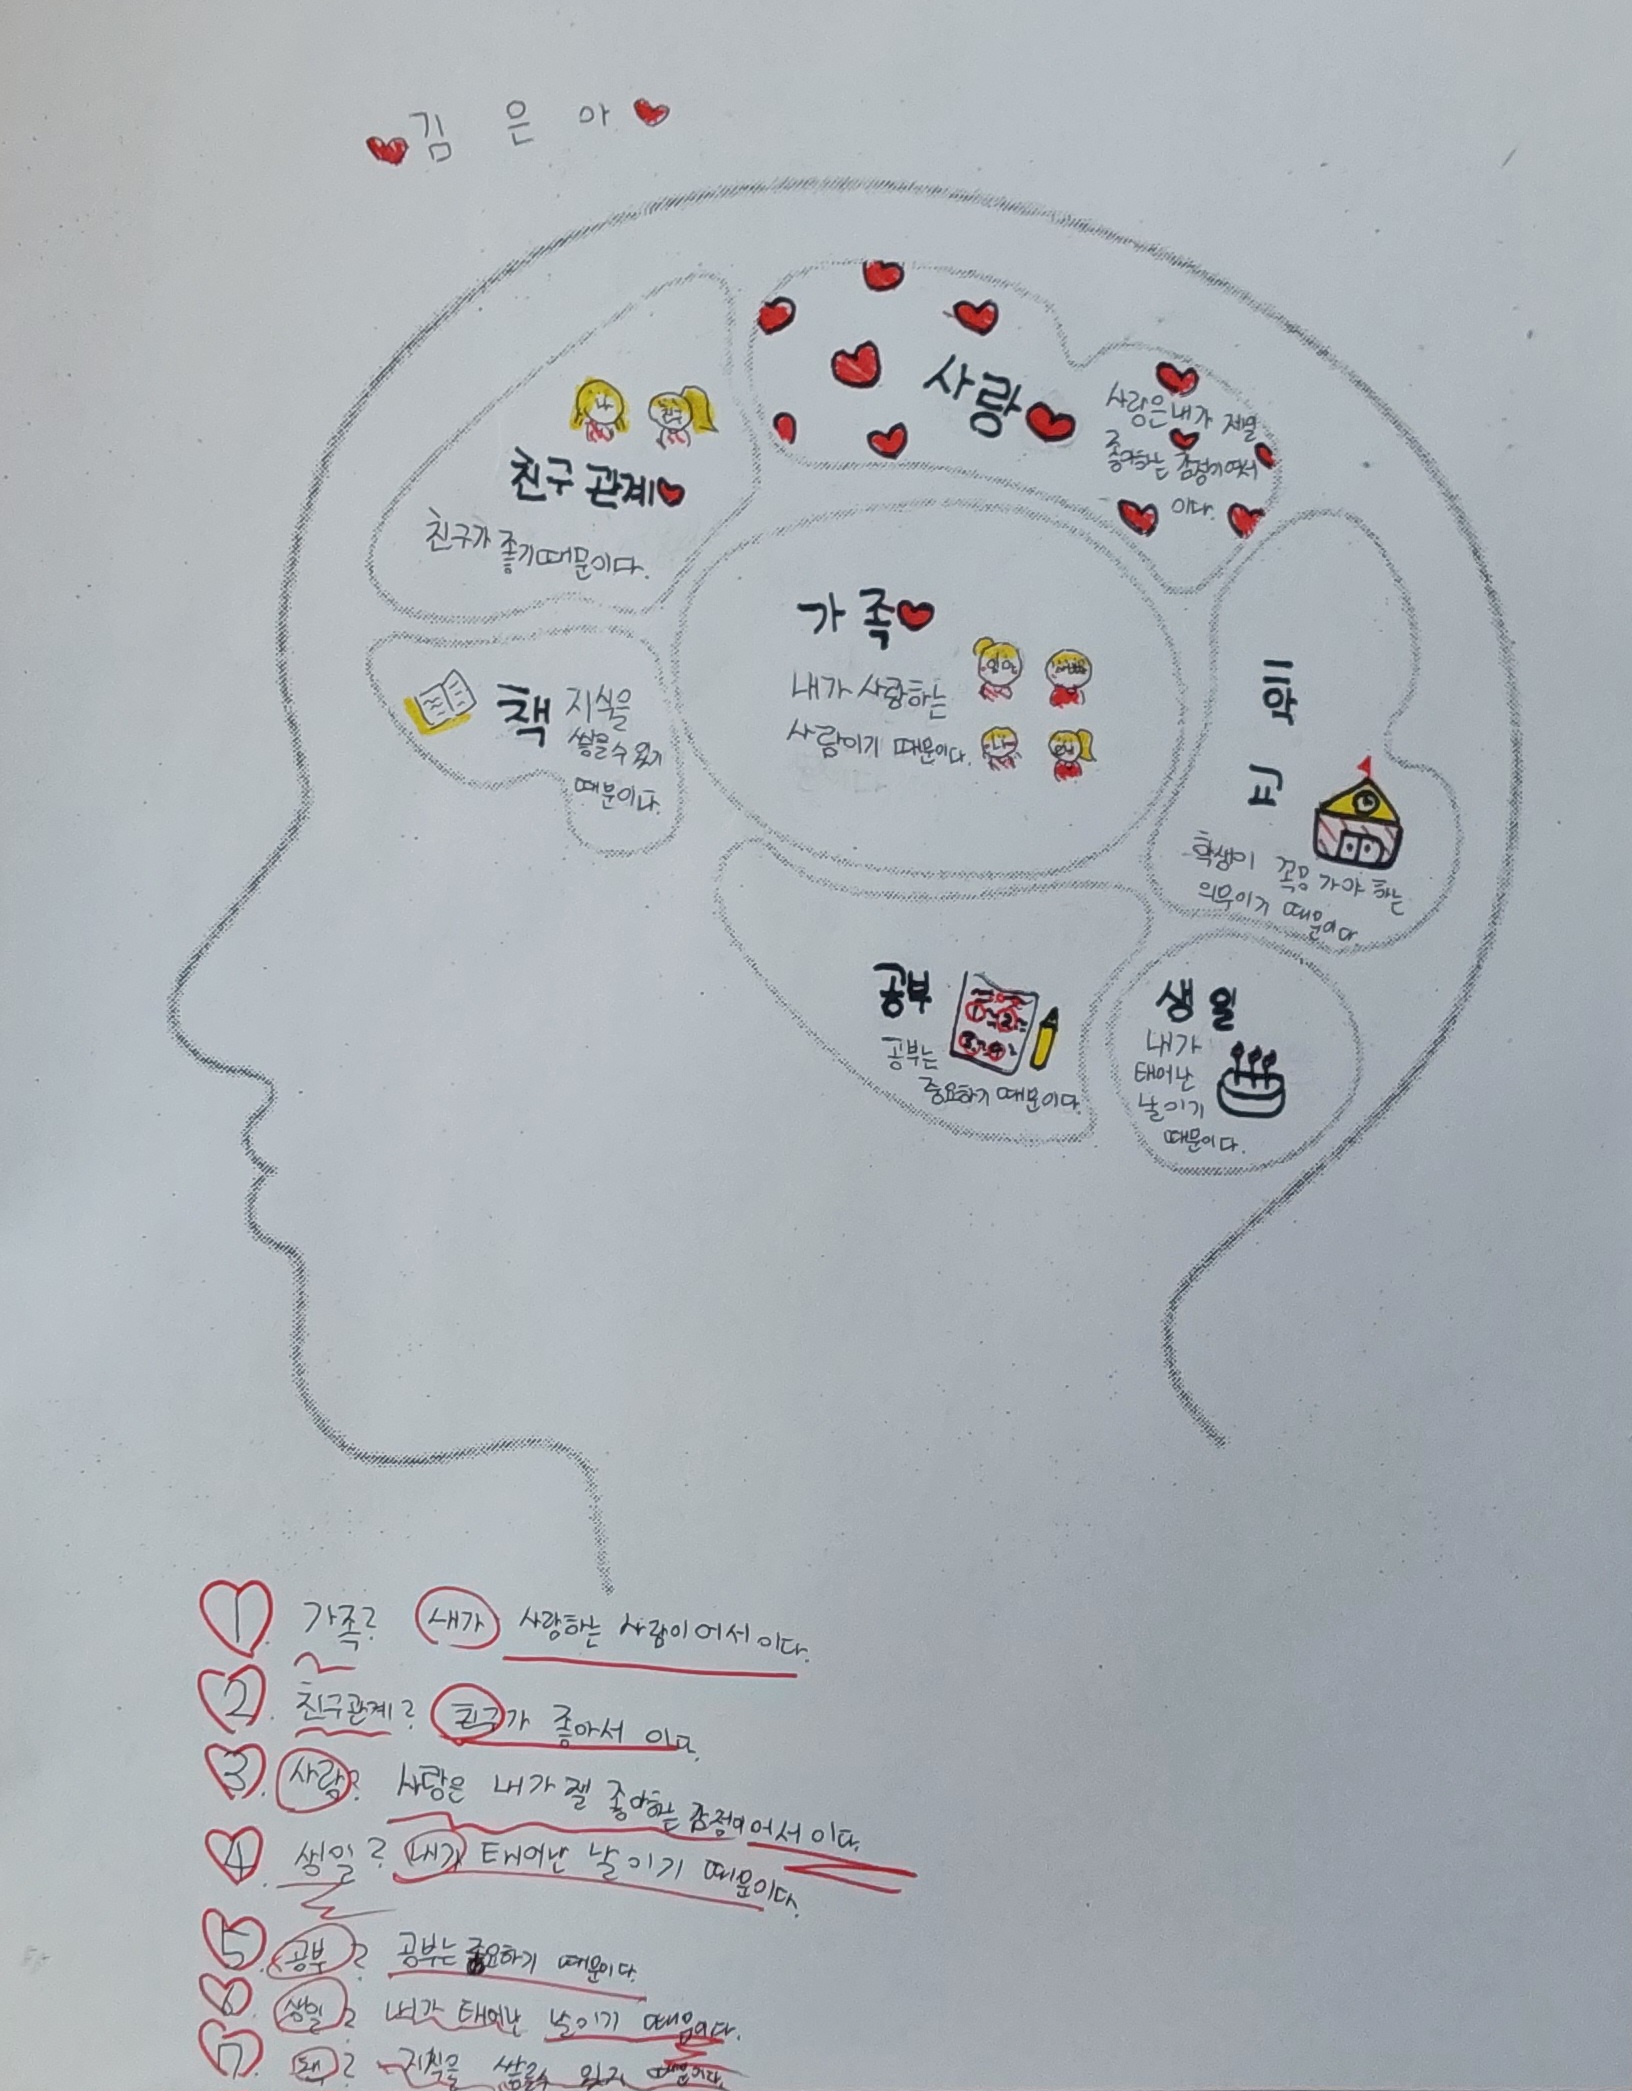 김 은 아
친구 관계
나
친구
친구가 좋기때문이다.
사랑
사랑은 내가 제일
좋아하는 감정이여서
이다.
가족
내가 사랑하는
사람이기 때문이다.
엄마
아빠
나
책
지식을
쌓을수 있기
때문이다.
학
교
학생이 꼭 가야 하는
의무이기 때문이다.
공부
공부는
중요하기 때문이다.
생일
내가
태어난
날이기
때문이다.
1. 가족? 내가 사랑하는 사람이어서 이다.
2. 친구관계? 친구가 좋아서 이다.
3. 사랑? 사랑은 내가 젤 좋아하는 감정이어서 이다.
4. 생일? 내가 태어난 날이기 때문이다.
5. 공부? 공부는 중요하기 때문이다.
6. 생일? 내가 태어난 날이기 때문이다.
7. 책? 지식을 쌓을수 있기 때문이다.